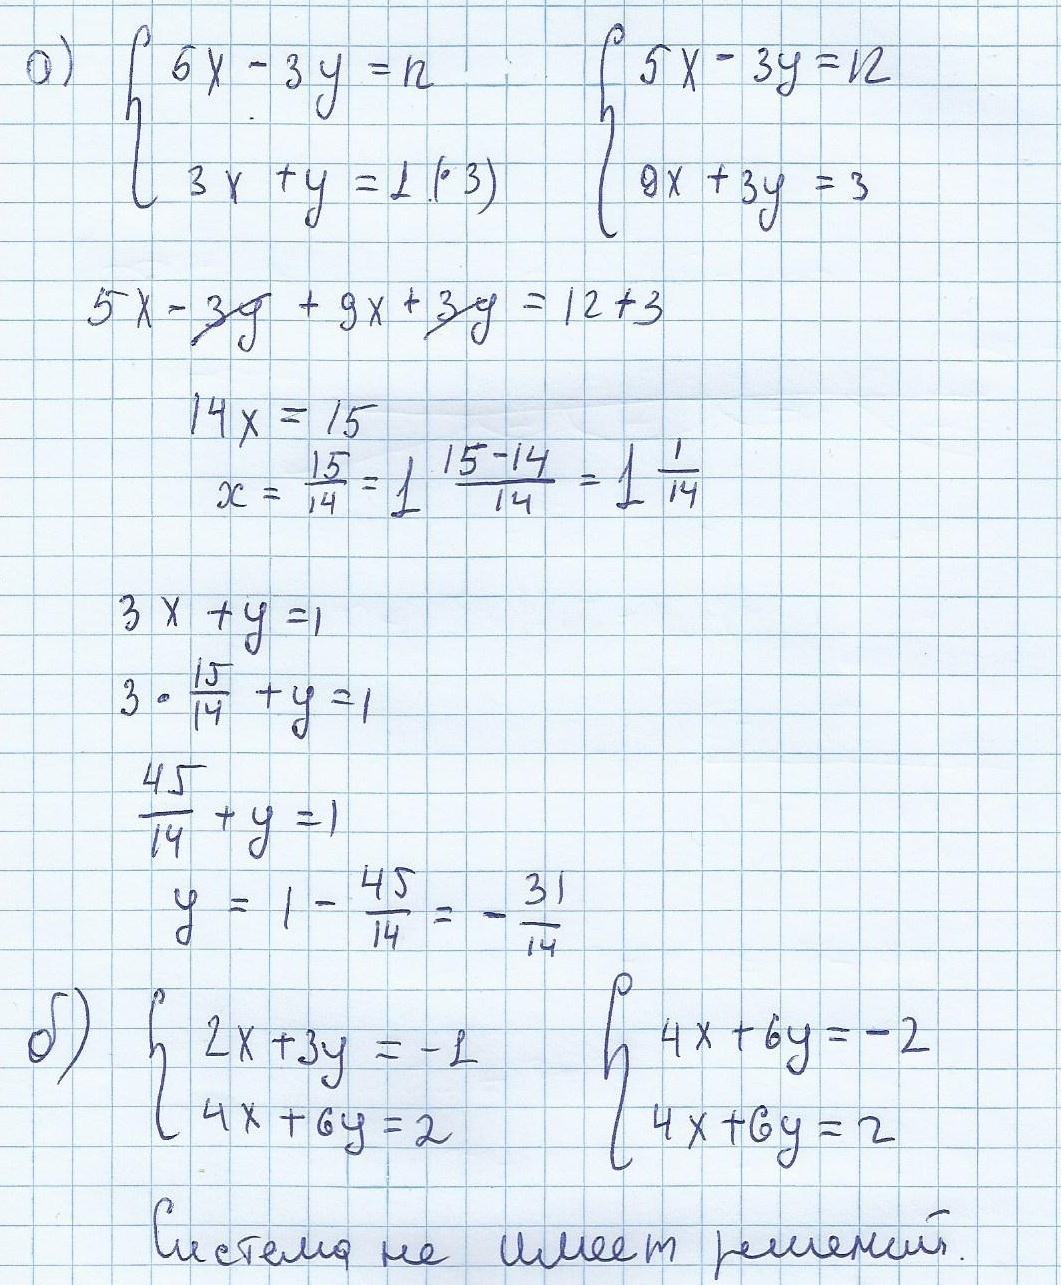 а) { 5x - 3y = 12 { 5x - 3y = 12
3x + y = 1 (· 3) 9x + 3y = 3
5x - 3y + 9x + 3y = 12 + 3
14x = 15
x = 15/14 = 1 (15-14)/14 = 1 1/14
3x + y = 1
3 · 15/14 + y = 1
45/14 + y = 1
y = 1 - 45/14 = - 31/14
б) { 2x + 3y = -1 { 4x + 6y = -2
4x + 6y = 2 4x + 6y = 2
Система не имеет решений.